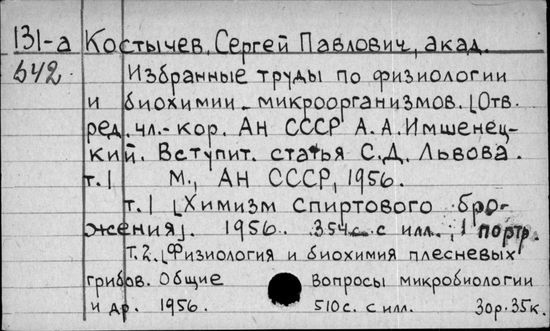 131-а Костычев, Сергей Павлович, акад.
642 Избранные труды по физиологии
и биохимии микроорганизмов. [Отв.
ред. чл.-кор. АН СССР А.А. Имшенец-
кий. Вступит. статья С.Д. Львова.
т.1 М., АН СССР, 1956.
т.1 [Химизм спиртового бро-
жения]. 1956. 354с. с илл., 1 портр.
т.2. [Физиология и биохимия плесневых
грибов. Общие вопросы микробиологии
и др. 1956. 510с. с илл. 30р.35к.